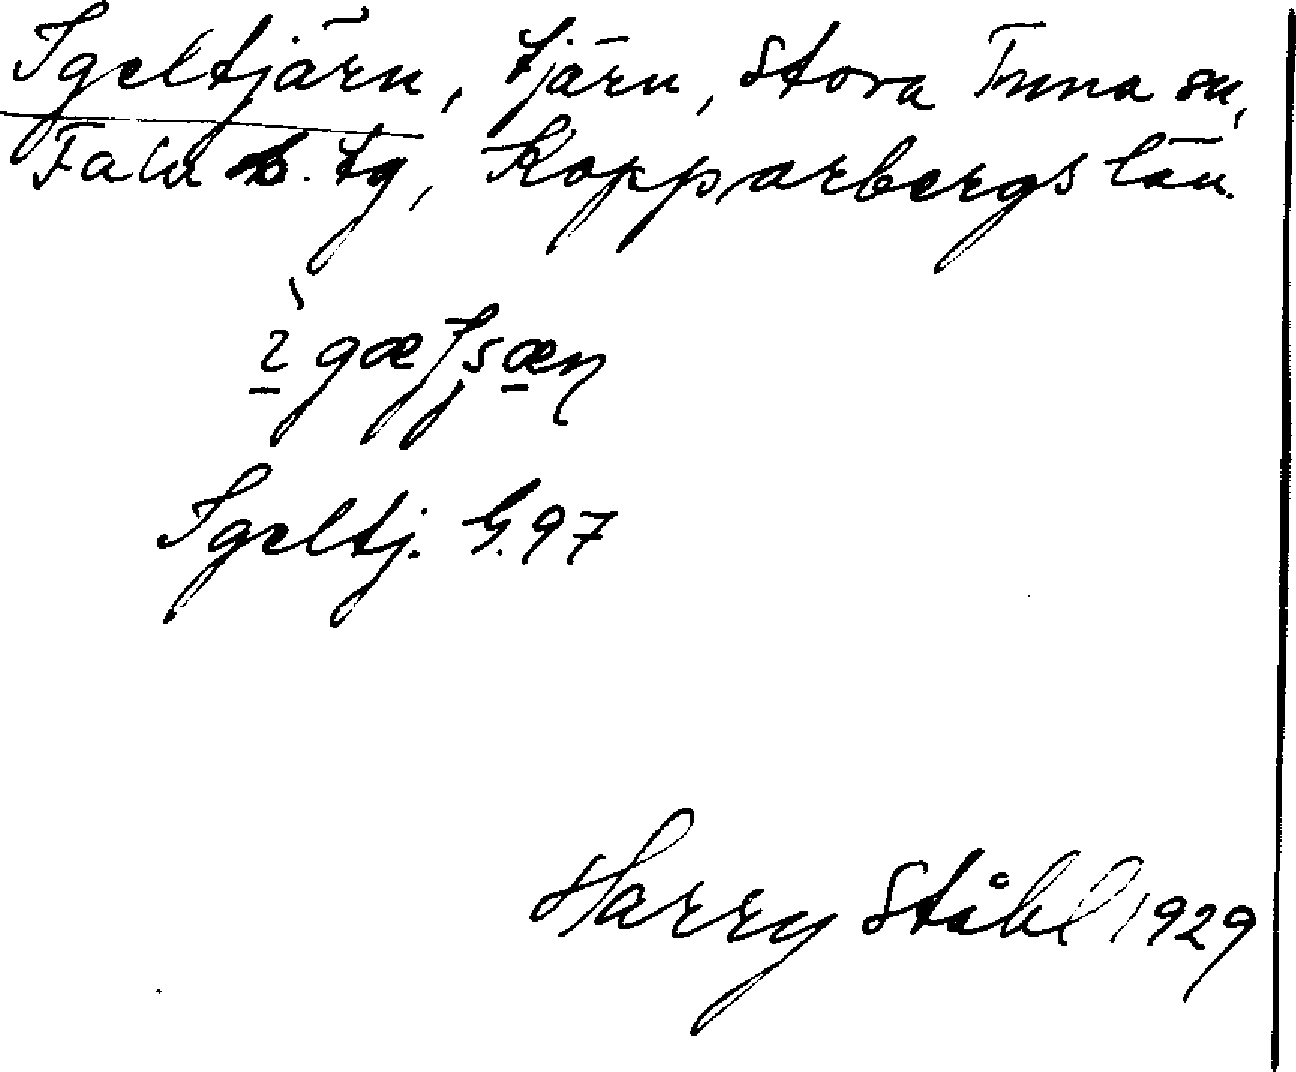 Igeltjärn, tjärn, Stora Tuna sn,
Falu s. tg, Kopparbergs län.
Igeltj. G.97
Harry Ståhl 1929